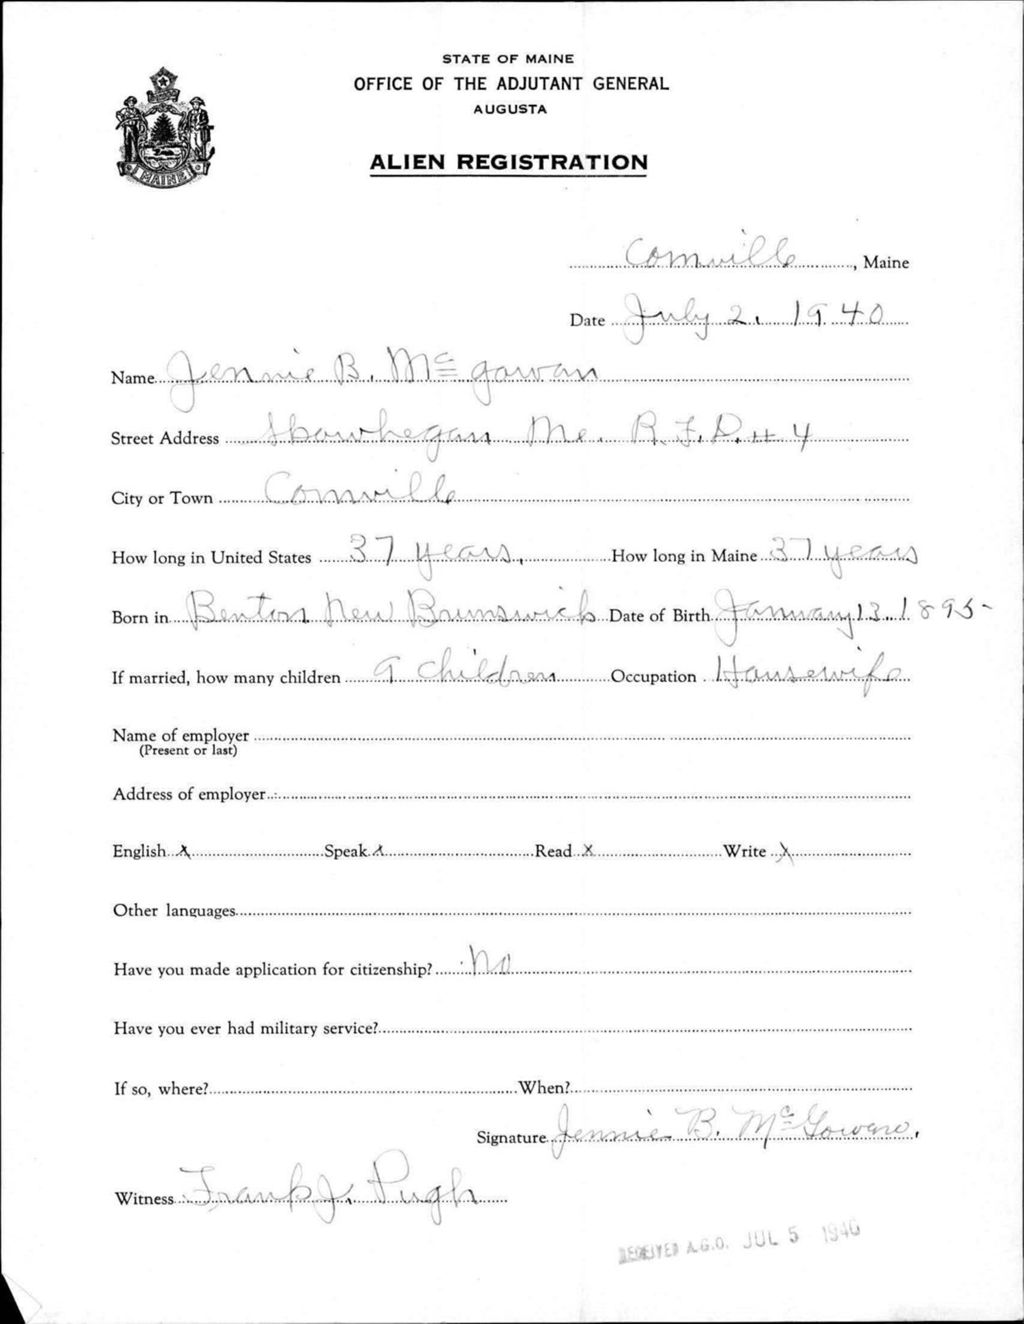 STATE OF MAINE
OFFICE OF THE ADJUTANT GENERAL
AUGUSTA
MAINE
ALIEN REGISTRATION
Cornville, Maine
Date July 2, 1940
Name Jennie B. McGowan
Street Address Skowhegan Me. R.F.D. # 4
City or Town Cornville
How long in United States 37 years, How long in Maine 37 years
Born in Benton New Brunswick Date of Birth January 13, 1895
If married, how many children 9 children Occupation Housewife
Name of employer
(Present or last)
Address of employer
English X Speak X Read X Write X
Other languages
Have you made application for citizenship? No
Have you ever had military service?
If so, where? When?
Signature Jennie B. McGowan.
Witness Frank J. Pugh
RECEIVED A.G.O. JUL 5 1940